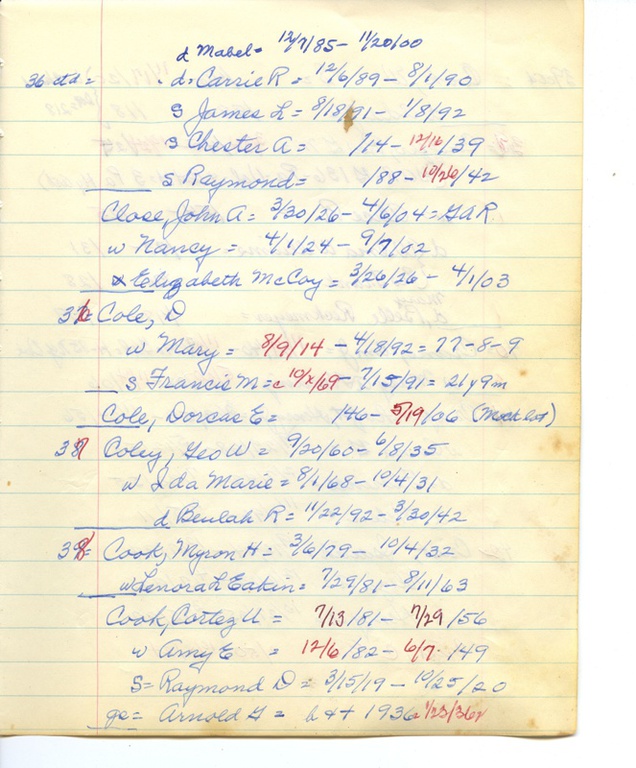 d Mabel = 12/7/85 - 11/20/00
36 ctd = d = Carrie R = 12/6/89 - 8/1/90
s James L = 8/18/91 - 1/8/92
s Chester A = /14 - 12/16/39
s Raymond = /88 - 10/26/42
Close, John A = 3/30/26 - 4/6/04 = GAR
w Nancy = 4/1/24 - 9/7/02
x Elizabeth McCoy = 3/26/26 - 4/1/03
Cole, D
w Mary = 8/9/14 - 4/18/92 = 77-8-9
s Francis M = c 10/x/69 - 7/15/91 = 21y9m
Cole, Dorcas E = /46 - 5/19/06 (Mock lot)
Coley, Geo W = 9/20/60 - 6/8/35
w Ida Marie = 8/1/68 - 10/4/31
d Beulah R = 11/22/92 - 3/30/42
Cook, Myron H = 3/6/79 - 10/4/32
w Lenorah Eakin = 7/29/81 - 8/11/63
Cook, Cortez U = 7/13/81 - 7/29/56
w Amy E = 12/6/82 - 6/7/49
S = Raymond D = 3/15/19 - 10/25/20
gs = Arnold G = b + + 1936 1/23/36